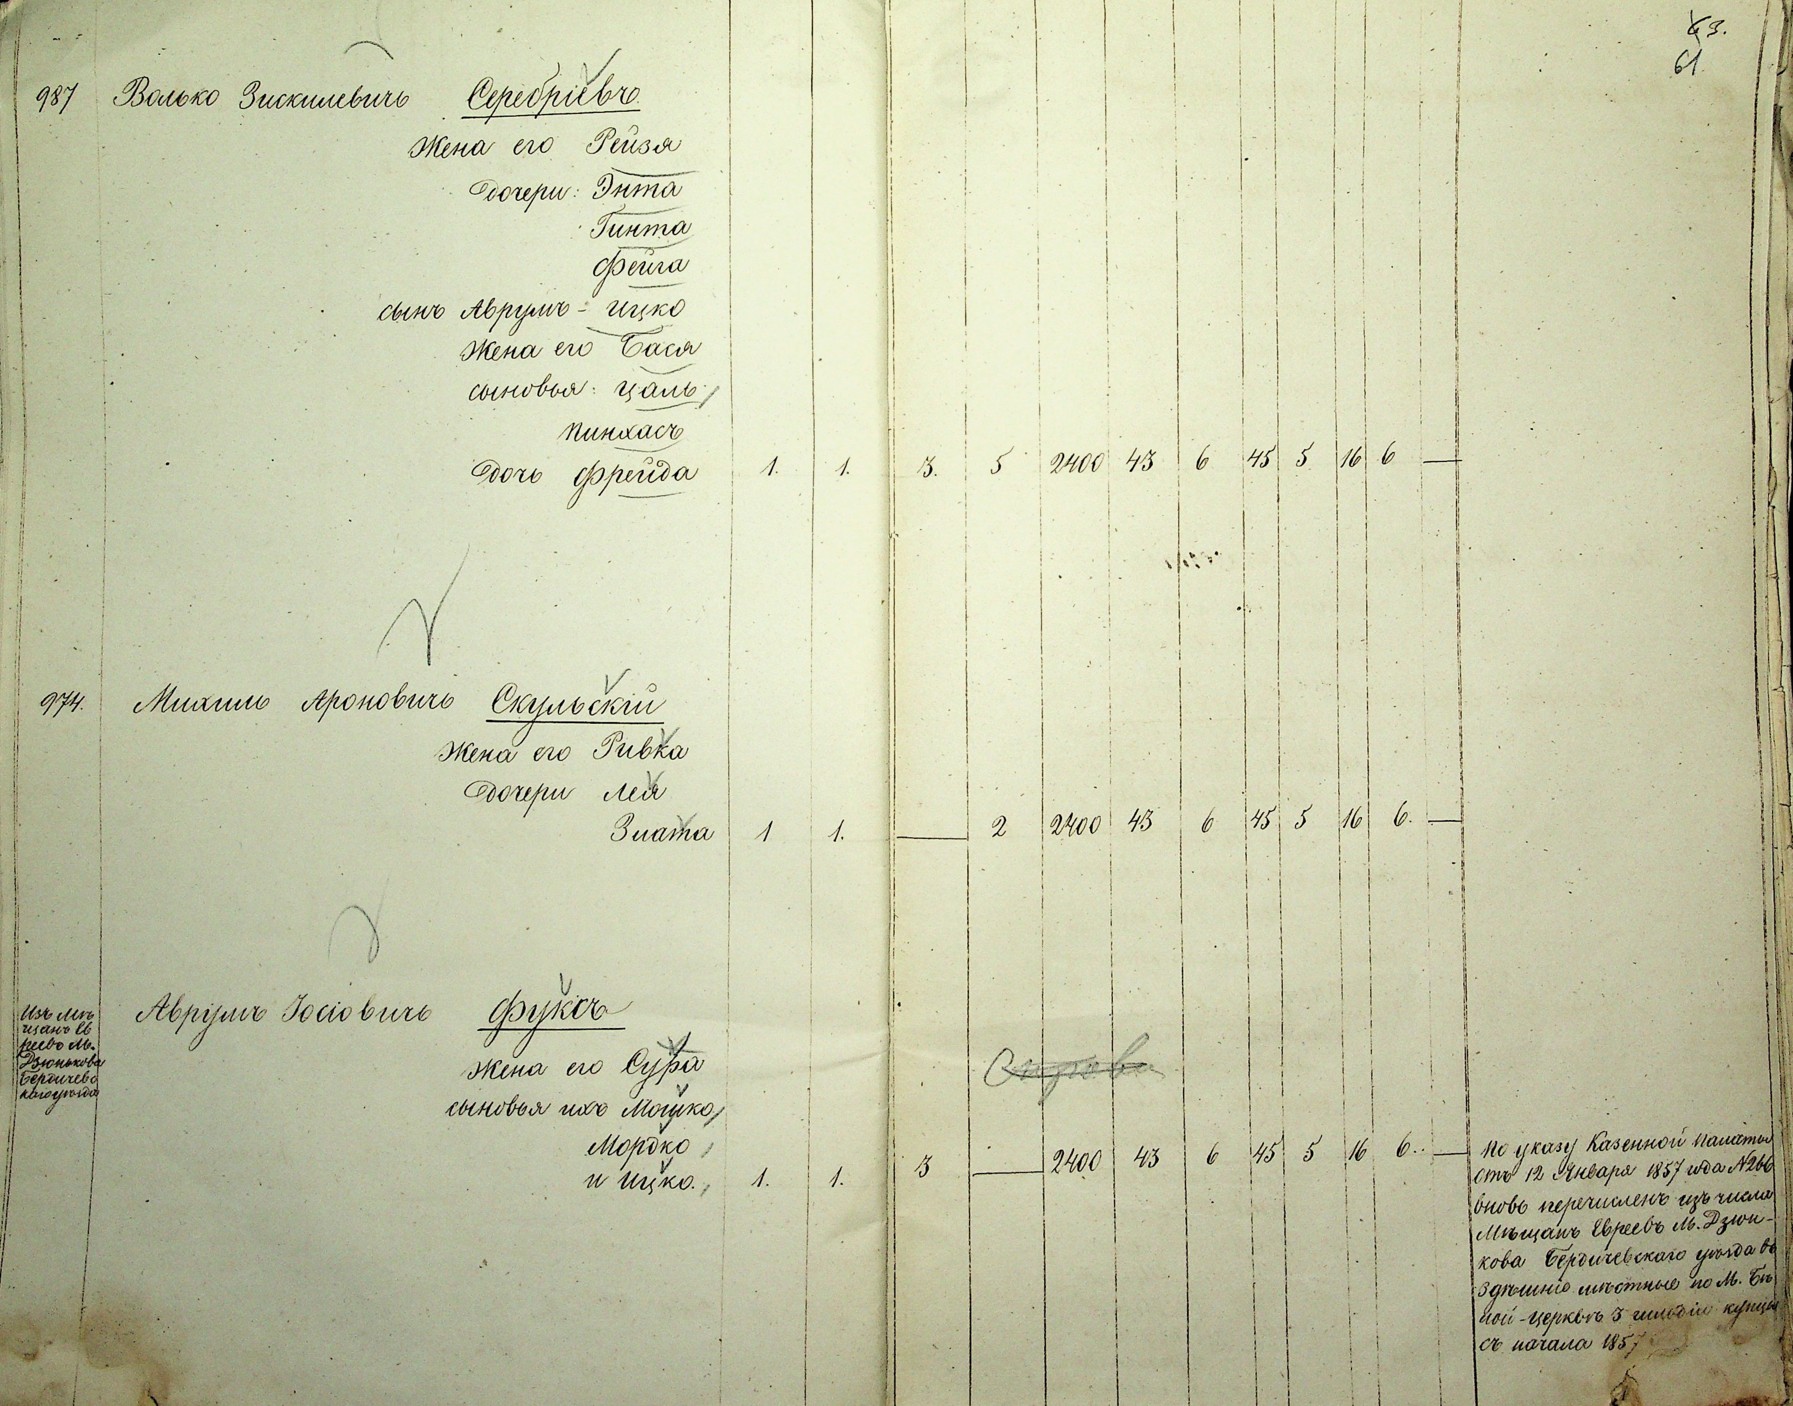 63.
61
987 Волько Зискилевичъ Серебріевъ
Жена его Рейзя
Дочери: Энта
Гинта
Фейга
сынъ Аврумъ-Ицко
Жена его Бася
сыновья: Цаль
Пинхасъ
Дочь Фрейда 1. 1. 3. 5 2400 43 6 45 5 16 6 —
974. Михиль Ароновичъ Скульскій
Жена его Ривка
Дочери Лея
Злата 1 1. — 2 2400 43 6 45 5 16 6. —
Изъ мѣ
щанъ Ев
реевъ М.
Дзюнькова
Бердичевс
каго уѣзда
Аврумъ Іосіовичъ Фуксъ
Жена его Сура
сыновья ихъ Мошко
Мордко
и Ицко. 1. 1. 3 — 2400 43 6 45 5 16 6. —
По указу Казенной Палаты
отъ 12 Января 1857 года N 266
вновь перечисленъ изъ числа
Мѣщанъ Евреевъ М. Дзюн-
кова Бердичевскаго уѣзда въ
здѣшніе мѣстные по М. Бѣ
лой-Церквѣ 3 гильдіи купцы
съ начала 1857